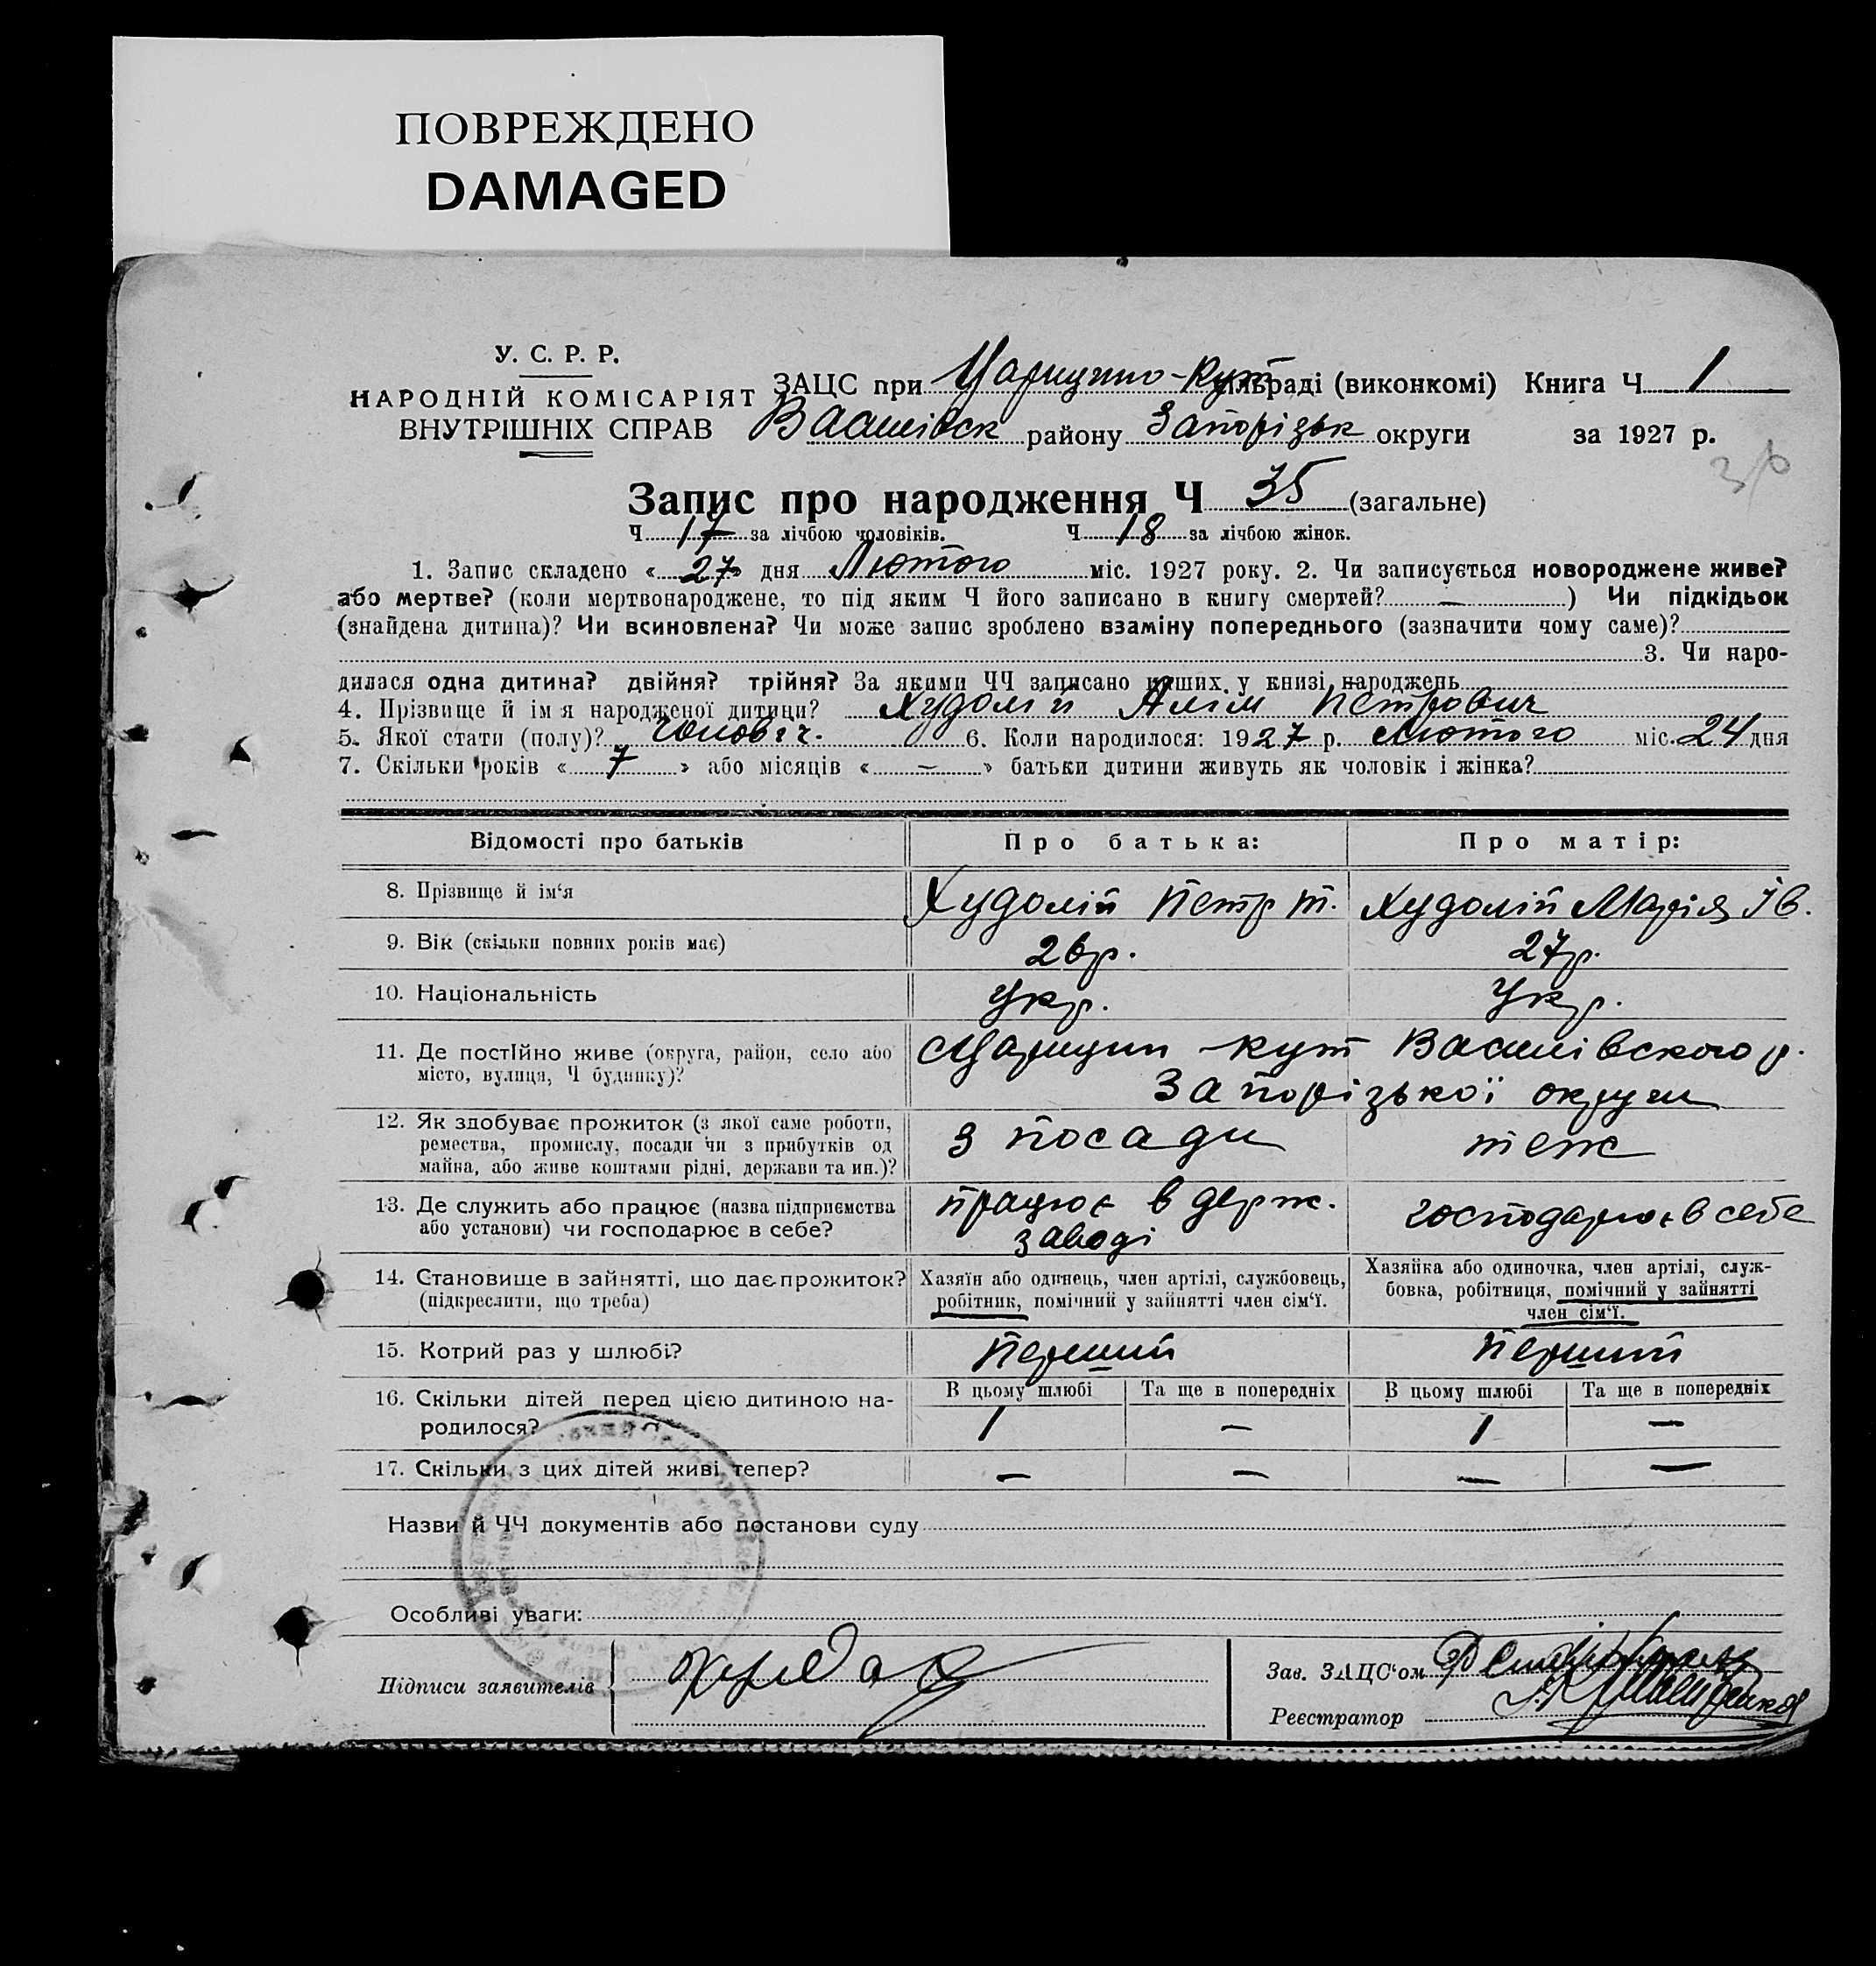 ПОВРЕЖДЕНО
DAMAGED
У. С. Р. Р.
НАРОДНІЙ КОМІСАРІЯТ
ВНУТРІШНІХ СПРАВ
ЗАЦС при Царицино-Кут сільраді (виконкомі) Книга Ч 1
Василівськ району Запорізьк округи за 1927 р.
36
Запис про народження Ч 35 (загальне)
Ч 17 за лічбою чоловіків. Ч 18 за лічбою жінок.
1. Запис складено « 27 » дня Лютого міс. 1927 року. 2. Чи записується новороджене живе?
або мертве? (коли мертвонароджене, то під яким Ч його записано в книгу смертей? — ) Чи підкідьок
(знайдена дитина)? Чи всиновлена? Чи може запис зроблено взаміну попереднього (зазначити чому саме)?
3. Чи наро-
дилася одна дитина? двійня? трійня? За якими ЧЧ записано инших у книзі народжень
4. Прізвище й імя народженої дитини? Худолій Алім Петрович
5. Якої стати (полу)? Чоловіч. 6. Коли народилося: 1927 р. Лютого міс. 24 дня
7. Скільки років « 7 » або місяців « — » батьки дитини живуть як чоловік і жінка?
Відомості про батьків Про батька: Про матір:
8. Прізвище й ім'я Худолій Петр Т. Худолій Марія Ів.
9. Вік (скільки повних років має) 26р. 27р.
10. Національність Укр. Укр.
11. Де постійно живе (округа, район, село або Царицин-кут Василівського р.
місто, вулиця, Ч будинку)? Запорізької округи
12. Як здобуває прожиток (з якої саме роботи,
ремества, промислу, посади чи з прибутків од з посади теж
майна, або живе коштами рідні, держави та ин.)?
13. Де служить або працює (назва підприємства працює в держ. господарює в себе
або установи) чи господарює в себе? заводі
14. Становище в зайнятті, що дає прожиток? Хазяїн або одинець, член артілі, службовець, Хазяйка або одиночка, член артілі, служ-
(підкреслити, що треба) робітник, помічний у зайнятті член сім'ї. бовка, робітниця, помічний у зайнятті
член сім'ї.
15. Котрий раз у шлюбі? Перший Перший
16. Скільки дітей перед цією дитиною на- В цьому шлюбі Та ще в попередніх В цьому шлюбі Та ще в попередніх
родилося? 1 — 1 —
17. Скільки з цих дітей живі тепер? — — — —
Назви й ЧЧ документів або постанови суду
Особливі уваги:
Підписи заявителів
Зав. ЗАЦС'ом
Реєстратор